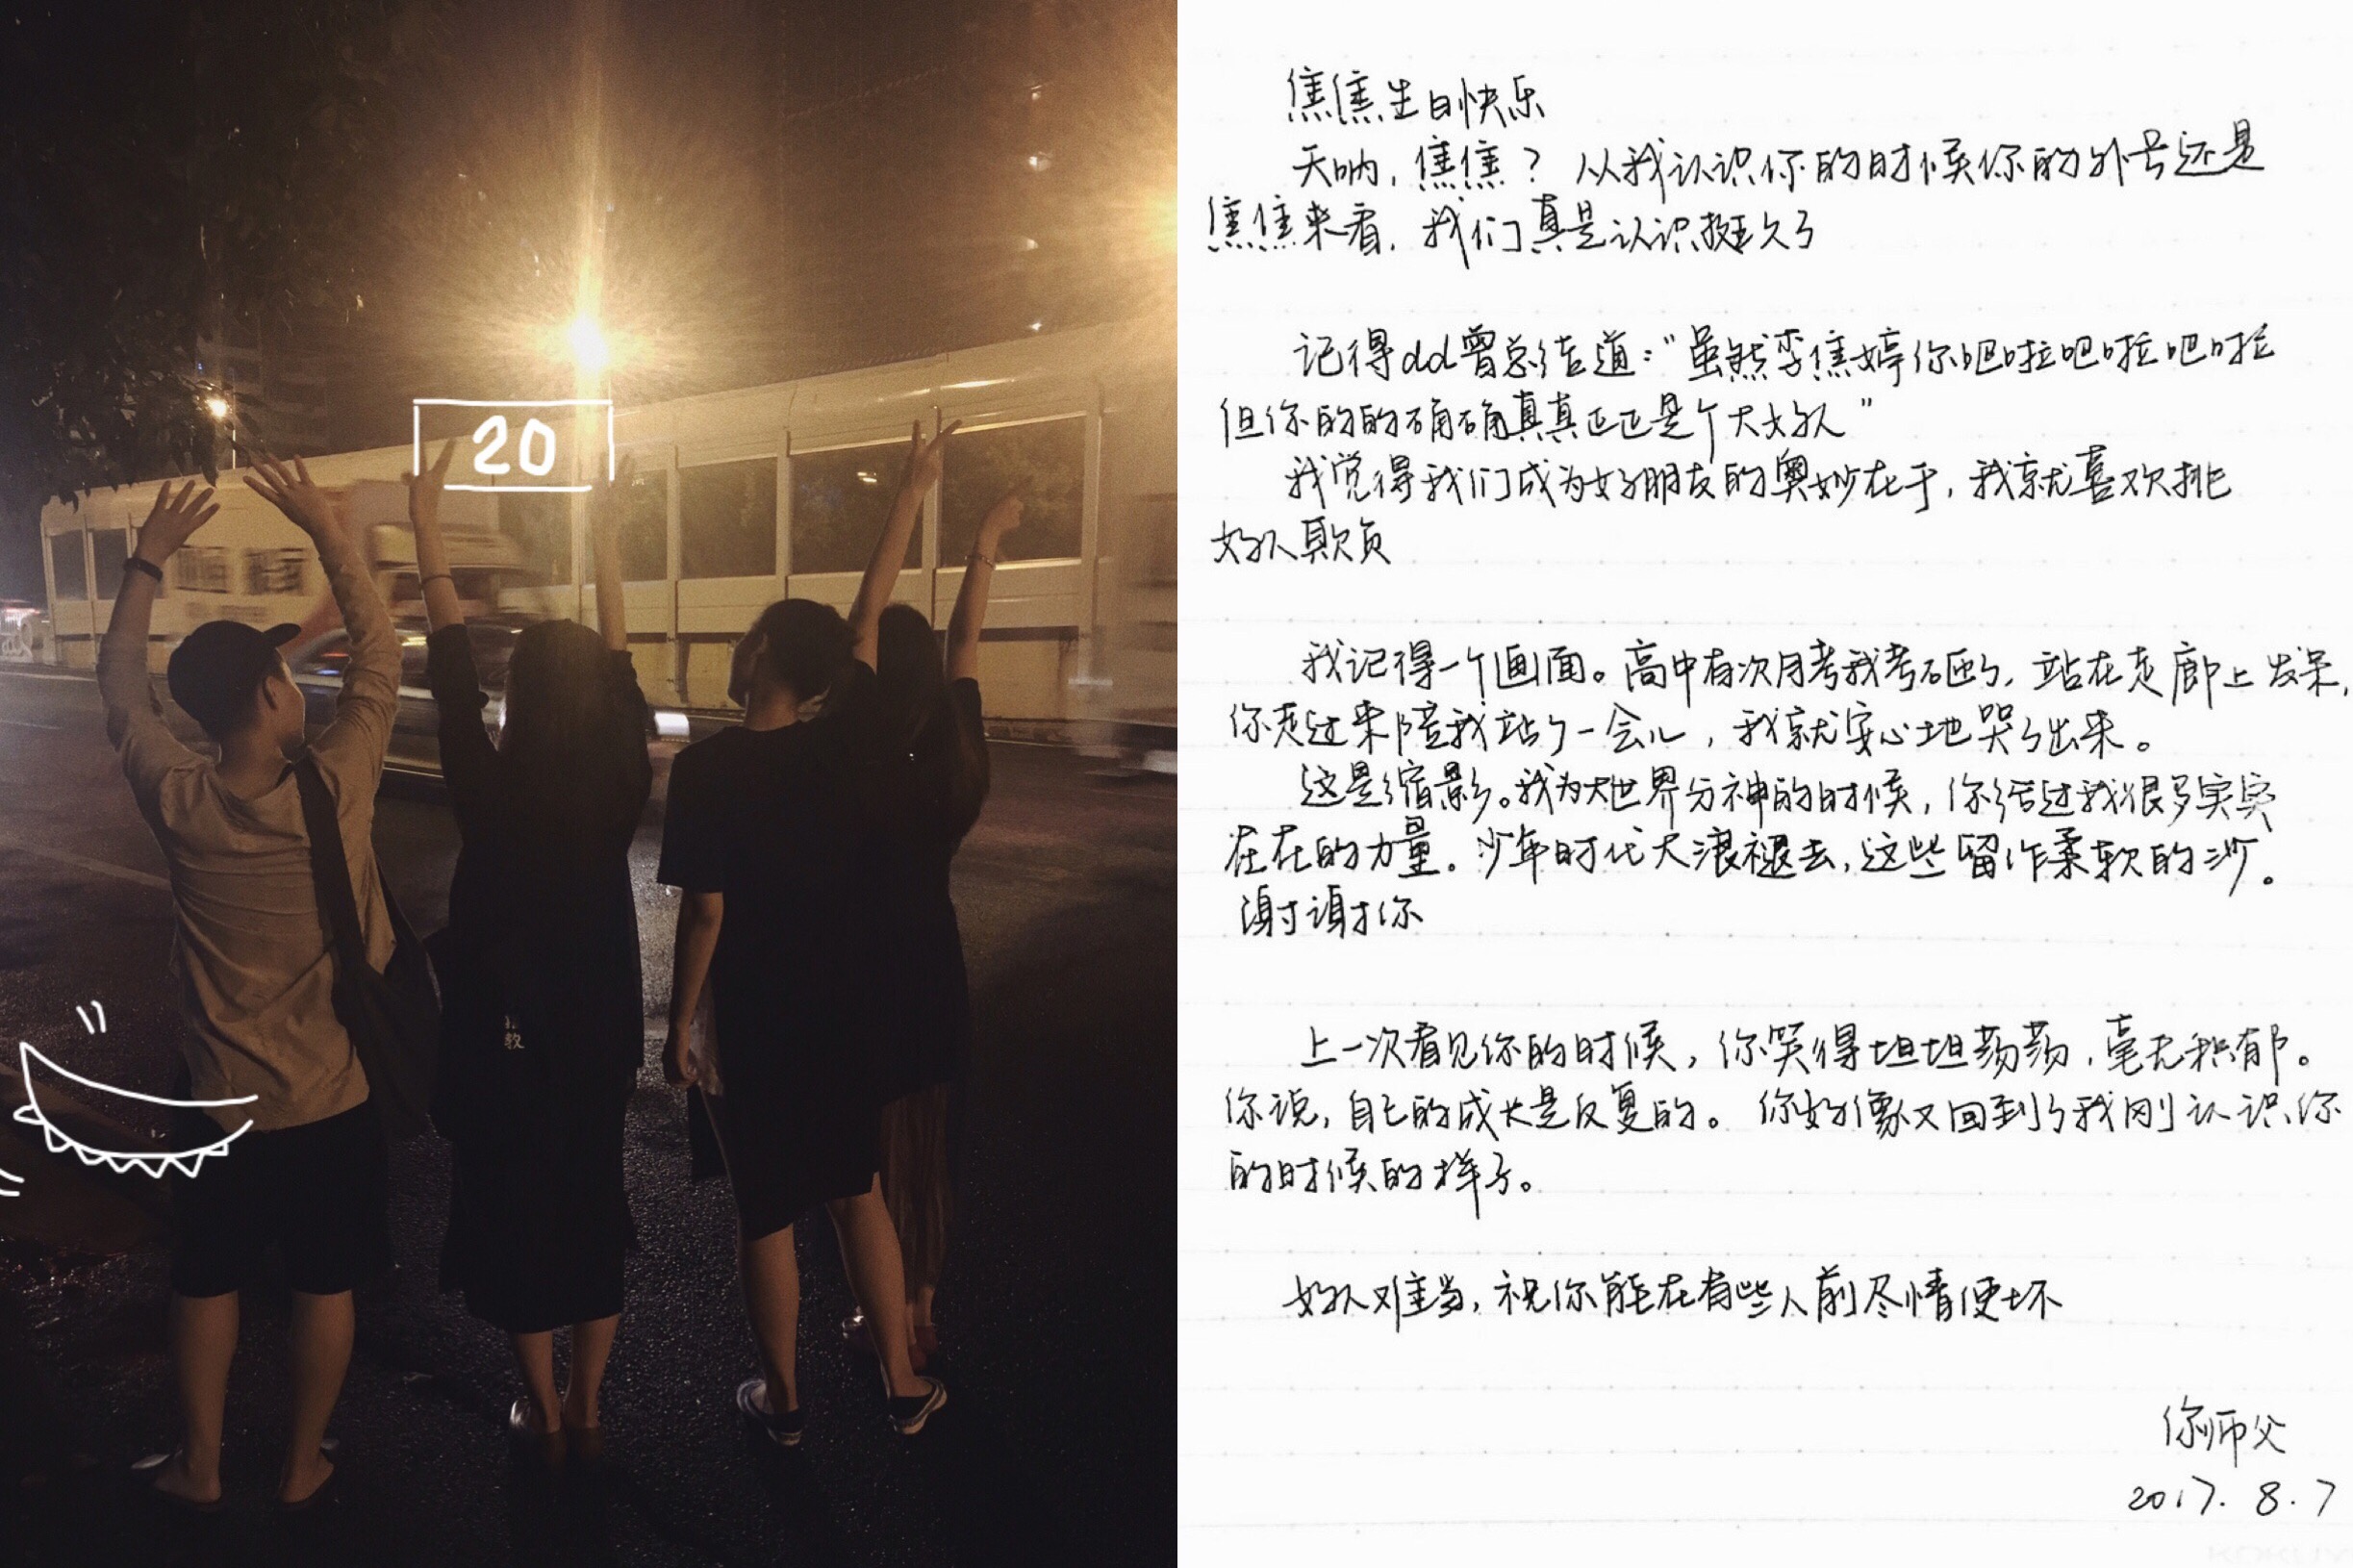 20
教
焦焦生日快乐
天呐，焦焦？从我认识你的时候你的外号还是
焦焦来看，我们真是认识挺久了
记得dd曾总结道：“虽然李焦婷你吧啦吧啦吧啦
但你的的确确真真正正是个大好人”
我觉得我们成为好朋友的奥妙在于，我就喜欢挑
好人欺负
我记得一个画面。高中有次月考我考砸了，站在走廊上发呆，
你走过来陪我站了一会儿，我就安心地哭了出来。
这是缩影。我为大世界分神的时候，你给过我很多实实
在在的力量。少年时代大浪褪去，这些留作柔软的沙。
谢谢你
上一次看见你的时候，你笑得坦坦荡荡，毫无积郁。
你说，自己的成长是反复的。你好像又回到了我刚认识你
的时候的样子。
好人难当，祝你能在有些人前尽情使坏
你师父
2017.8.7